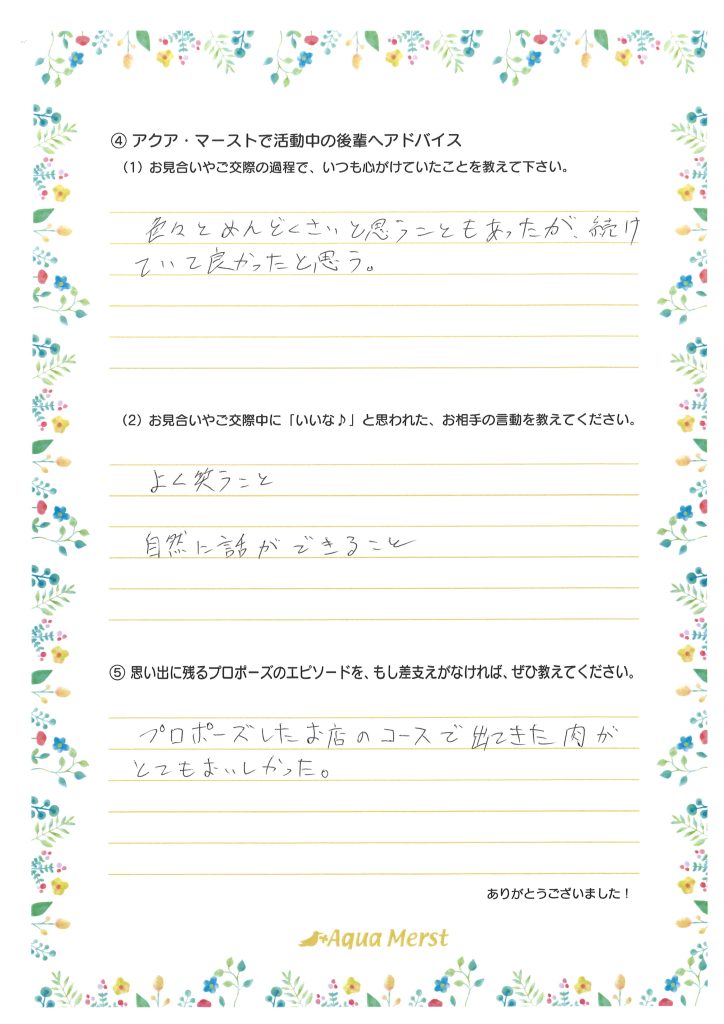 ④ アクア・マーストで活動中の後輩へアドバイス
（1）お見合いやご交際の過程で、いつも心がけていたことを教えて下さい。
色々とめんどくさいと思うこともあったが、続け
ていて良かったと思う。
（2）お見合いやご交際中に「いいな♪」と思われた、お相手の言動を教えてください。
よく笑うこと
自然に話ができること
⑤ 思い出に残るプロポーズのエピソードを、もし差支えがなければ、ぜひ教えてください。
プロポーズしたお店のコースで出てきた肉が
とてもおいしかった。
ありがとうございました！
Aqua Merst